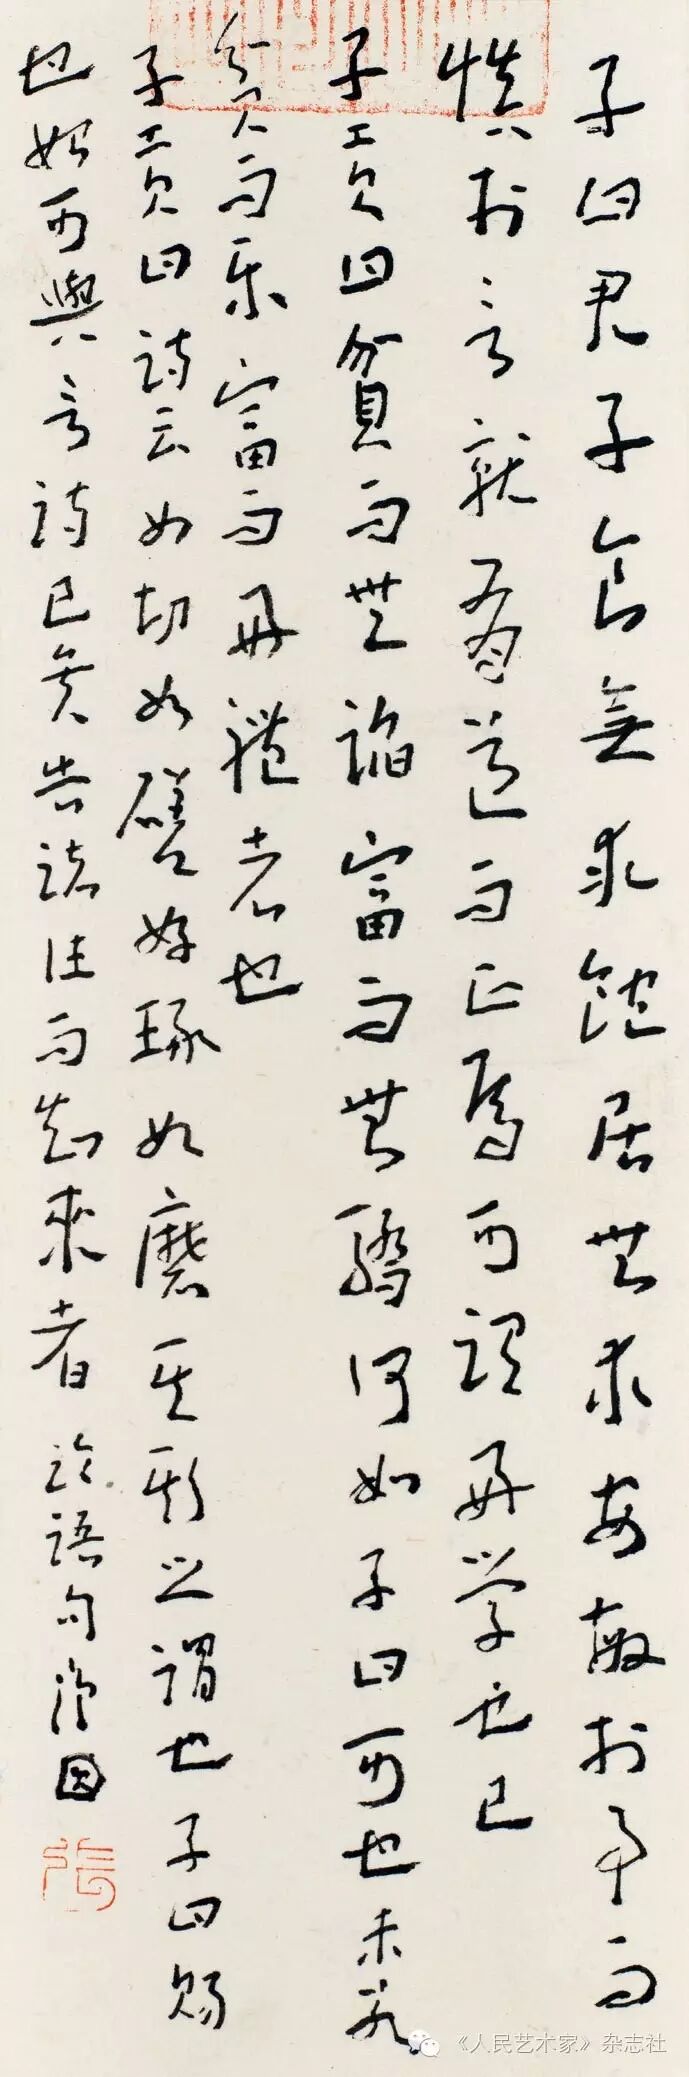 子曰君子食無求飽居無求安敏於事而
慎於言就有道而正焉可謂好学也已
子贡曰貧而無諂富而無驕何如子曰可也未若
贫而乐富而好禮者也
子贡曰诗云如切如磋如琢如磨其斯之謂也子曰赐
也始可與言诗已矣告诸往而知來者 论語句
張
《人民艺术家》杂志社